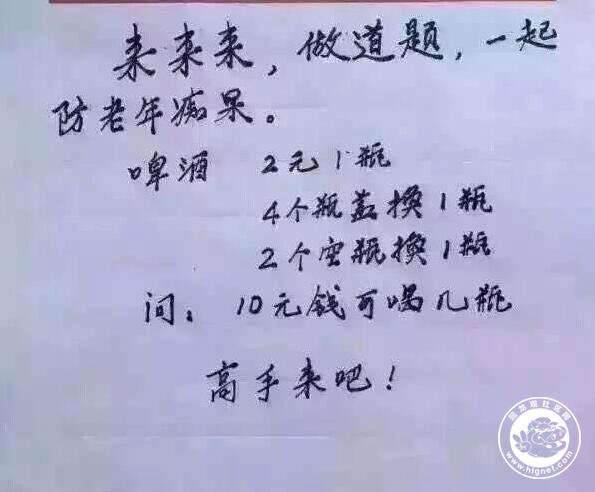 来来来，做道题，一起
防老年痴果。
啤酒 2元1瓶
4个瓶盖换1瓶
2个空瓶换1瓶
问：10元钱可喝几瓶
高手来吧！
回龙观社区网
www.hlgnet.com